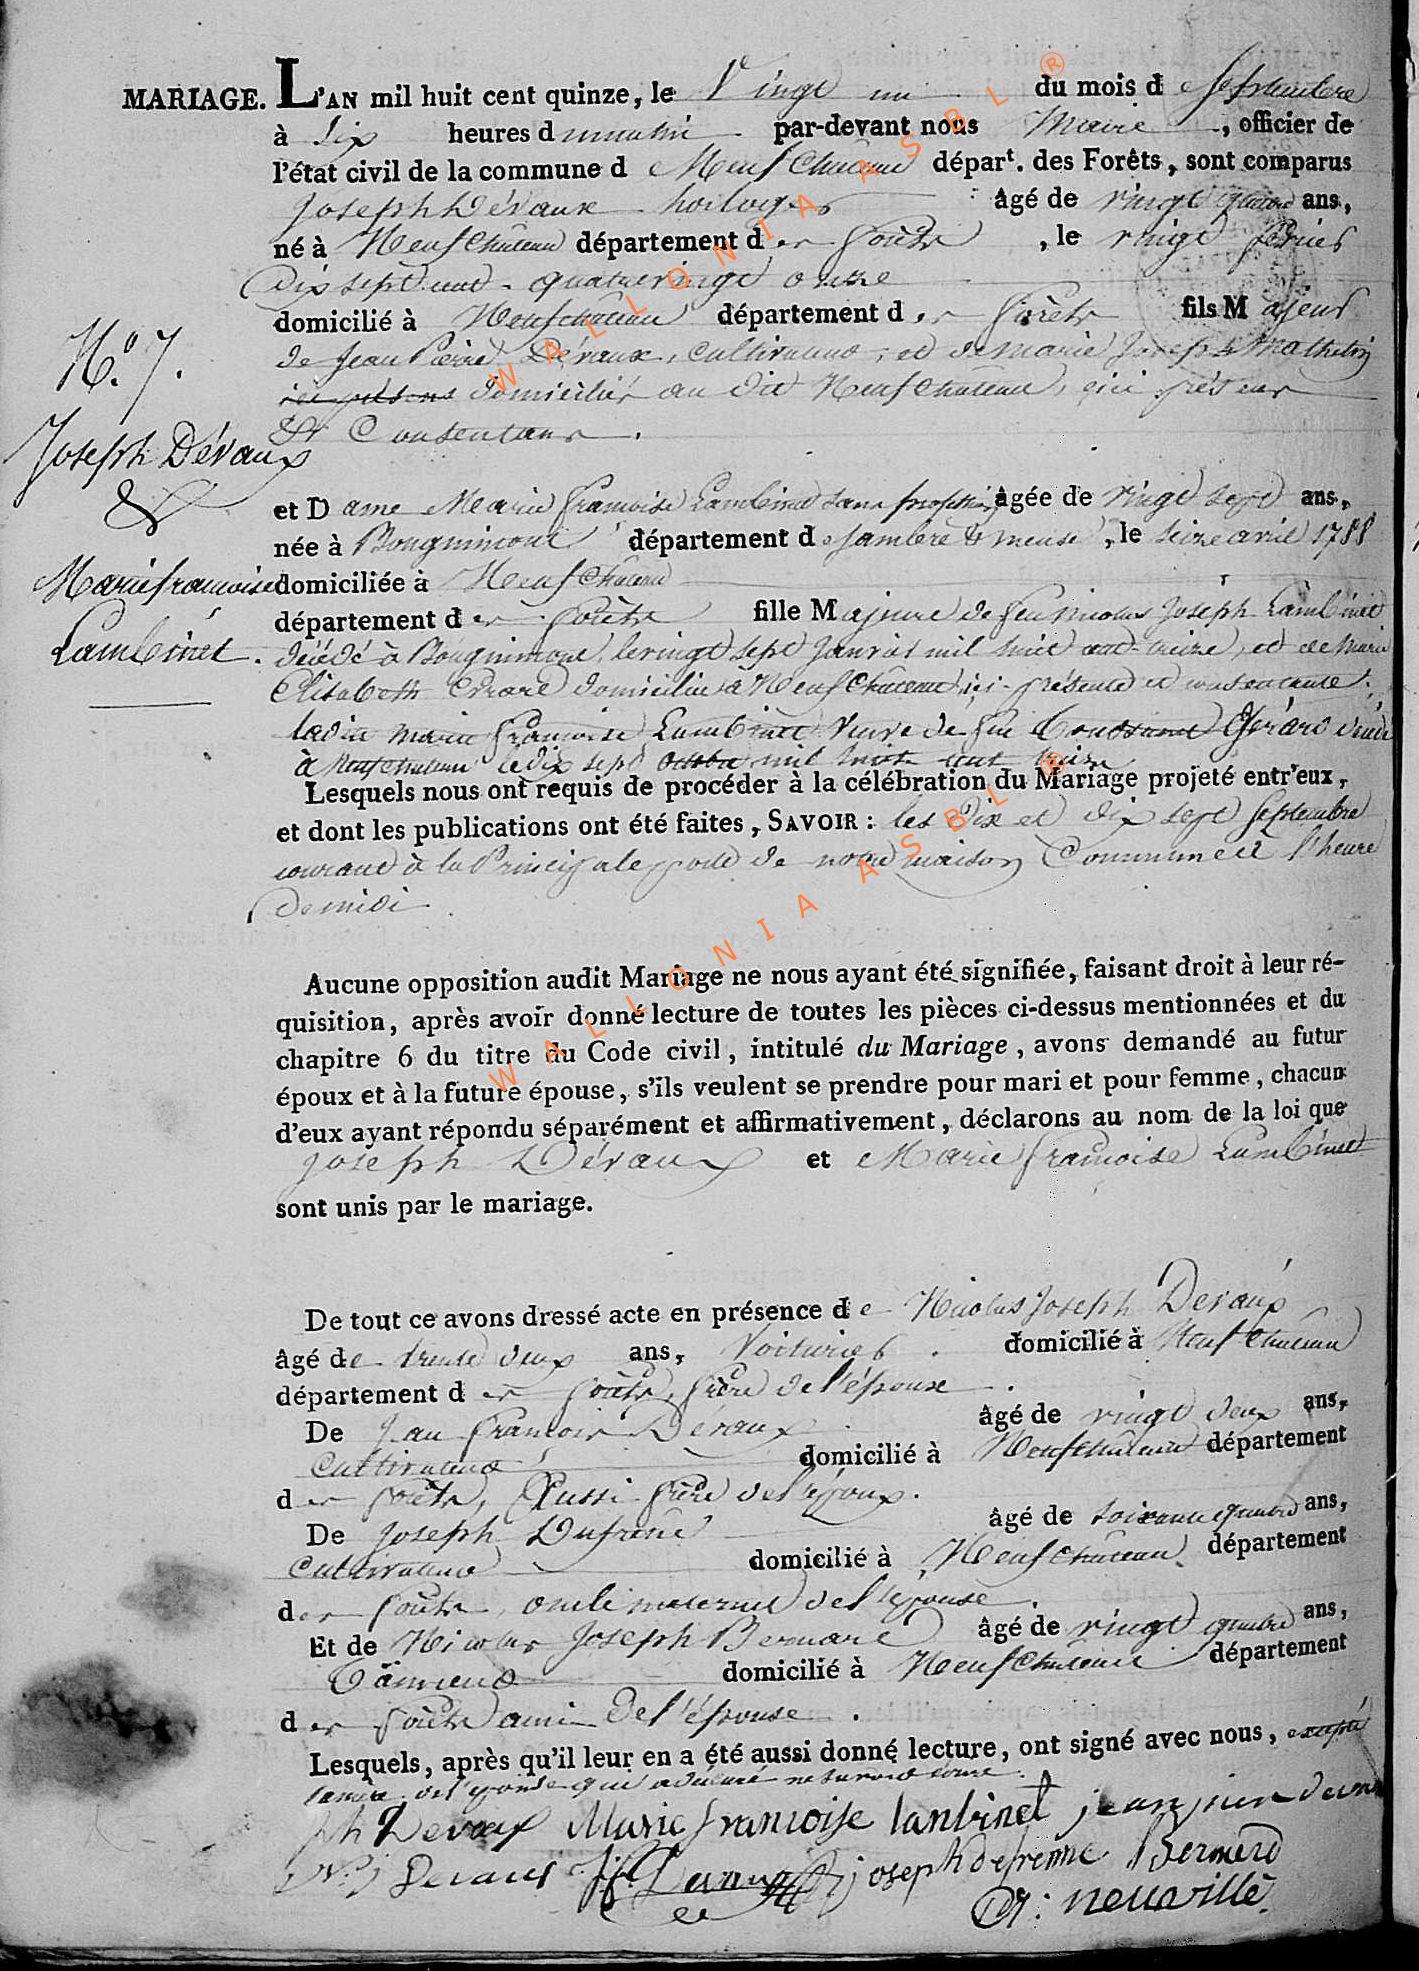 MARIAGE. L'AN mil huit cent quinze, le Vingt un du mois de Septembre
à dix heures du matin par-devant nous Maire, officier de
l'état civil de la commune d Neufchâteau départ. des Forêts, sont comparus
Joseph Dévaux horloger âgé de vingt quatre ans,
né à Neufchâteau département des forêts, le vingt
Dix sept cent quatrevingt onze
domicilié à Neufchâteau département des forêts fils Majeur
de Jean Pierre Dévaux, cultivateur, et de Marie Joseph Mathelin
domiciliés au dit Neufchâteau, ici présens
Et Consentans.
N.º 7.
Joseph Dévaux
&
Marie françoise
Lambinet.
et Dame Marie françoise Lambinet sans profession âgée de vingt sept ans,
née à département de Sambre & meuse, le seize avril 1788
domiciliée à Neufchâteau
département des forêts fille Majeure de feu nicolas Joseph Lambinet
décédé à le vingt sept Janvier mil huit cent treize, et de Marie
Elisabeth domiciliée à Neufchâteau, ici présente et consentante.
ladite Marie françoise Lambinet Veuve de feu Gérard décédé
à Neufchâteau le dix sept octobre mil huit cent treize
Lesquels nous ont requis de procéder à la célébration du Mariage projeté entr'eux,
et dont les publications ont été faites, SAVOIR : les Dix et dix sept Septembre
courant à la Principale porte de notre maison Commune à l'heure
De midi
Aucune opposition audit Mariage ne nous ayant été signifiée, faisant droit à leur ré-
quisition, après avoir donné lecture de toutes les pièces ci-dessus mentionnées et du
chapitre 6 du titre du Code civil, intitulé du Mariage, avons demandé au futur
époux et à la future épouse, s'ils veulent se prendre pour mari et pour femme, chacun
d'eux ayant répondu séparément et affirmativement, déclarons au nom de la loi que
Joseph Dévaux et Marie françoise Lambinet
sont unis par le mariage.
De tout ce avons dressé acte en présence de Nicolas Joseph Devaux
âgé de trente deux ans, Voiturier. domicilié à Neufchâteau
département des forêts, frère de l'époux.
De Jean François Dévaux âgé de vingt deux ans,
Cultivateur domicilié à Neufchâteau département
des forêts, Aussi frère de l'époux.
De Joseph Dufrêne âgé de soixante quatre ans,
Cultivateur domicilié à Neufchâteau département
des forêts, oncle maternel de l'épouse.
Et de Nicolas Joseph Bernard âgé de vingt quatre ans,
Tanneur domicilié à Neufchâteau département
des forêts ami De l'épouse.
Lesquels, après qu'il leur en a été aussi donné lecture, ont signé avec nous, excepté
la mère de l'épouse qui a déclaré ne savoir écrire.
jph Devaux Marie françoise lambinet jean pier devaux
N: j Devaux J f Devaux joseph defrenne Bernard
neuville
WALLONIA ASBL ®
WALLONIA ASBL ®